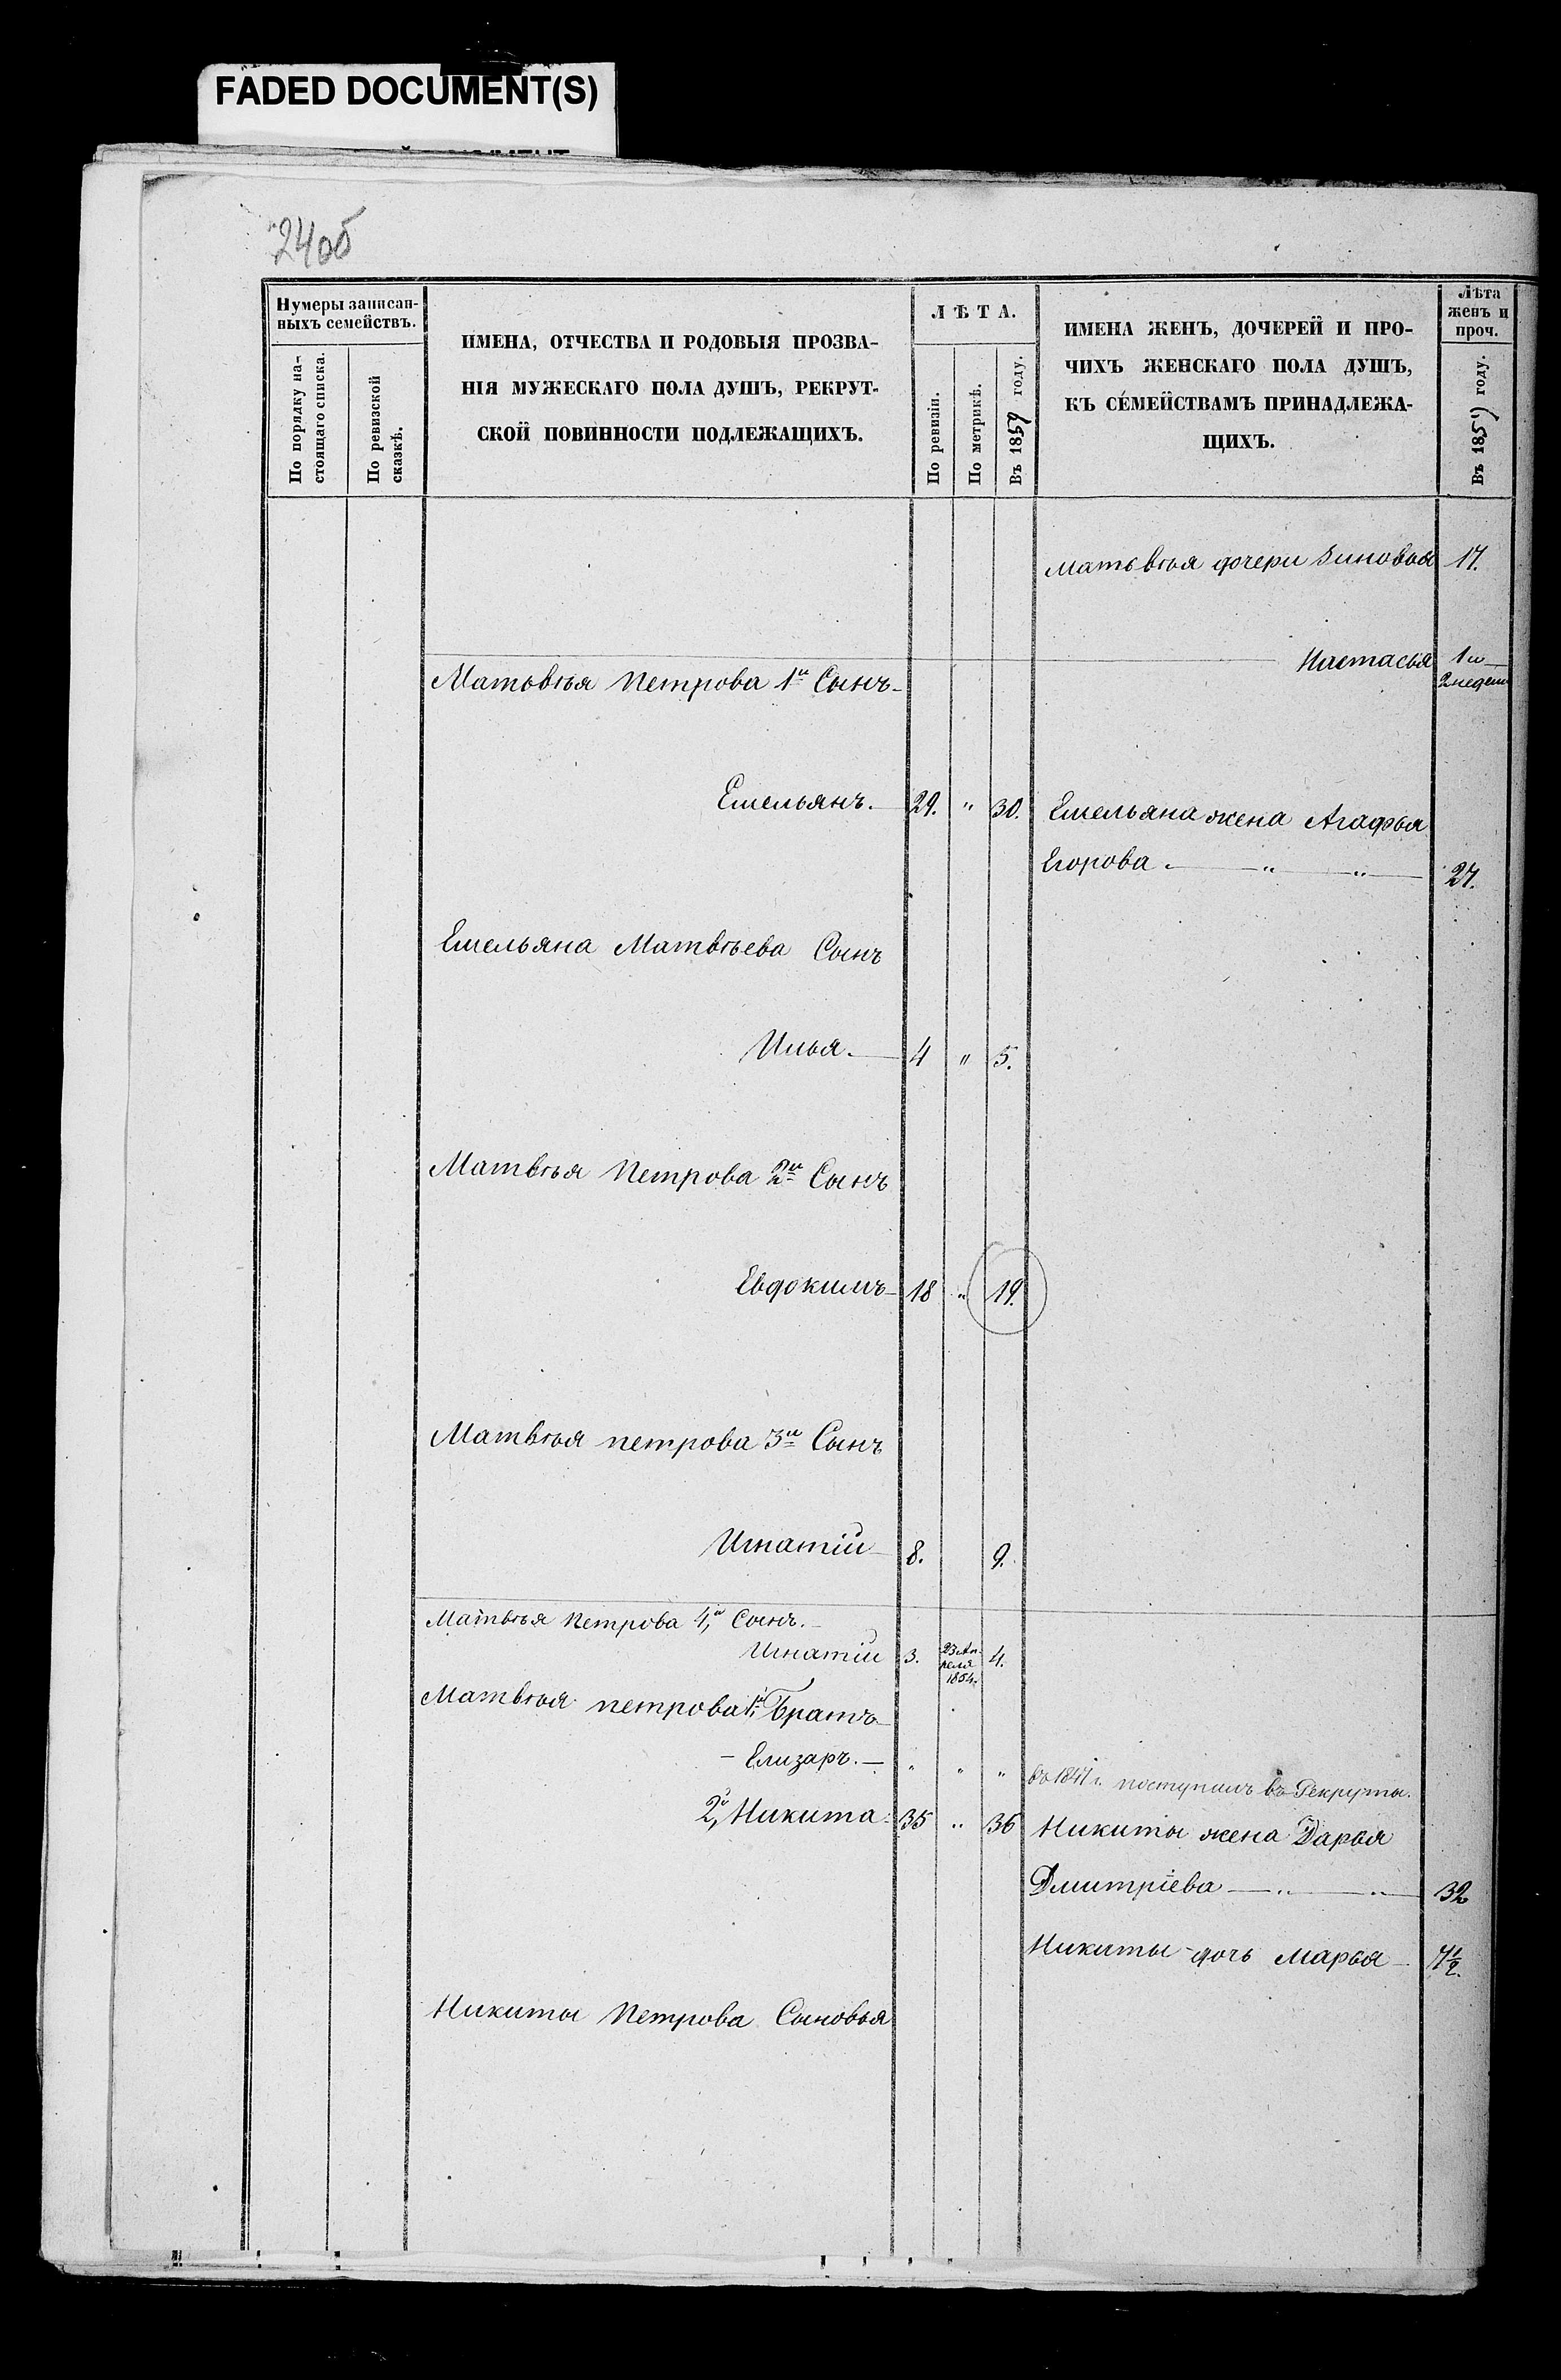 FADED DOCUMENT(S)
24об
Нумеры записан-
ныхъ семействъ.
По порядку на-
стоящаго списка.
По ревизской
сказкѣ.
ИМЕНА, ОТЧЕСТВА И РОДОВЫЯ ПРОЗВА-
НІЯ МУЖЕСКАГО ПОЛА ДУШЪ, РЕКРУТ-
СКОЙ ПОВИННОСТИ ПОДЛЕЖАЩИХЪ.
ЛѢТА.
По ревизіи.
По метрикѣ.
Въ 1859 году.
ИМЕНА ЖЕНЪ, ДОЧЕРЕЙ И ПРО-
ЧИХЪ ЖЕНСКАГО ПОЛА ДУШЪ,
КЪ СЕМЕЙСТВАМЪ ПРИНАДЛЕЖА-
ЩИХЪ.
Лѣта
женъ и
проч.
Въ 1859 году.
Матвѣя дочери Зиновья 17.
Настасья 1 и
2 недели
Матвѣя Петрова 1й Сынъ
Емельянъ. 29. " 30. Емельяна жена Агафья
Егорова " " 27.
Емельяна Матвѣева Сынъ
Илья. 4 " 5.
Матвѣя Петрова 2й Сынъ
Евдокимъ 18 " 19.
Матвѣя петрова 3й Сынъ
Игнатій 8. 9.
Матвѣя Петрова 4й Сынъ.
Игнатій 3. 23 Ап-
реля
1854. 4.
Матвѣя петрова 1й Братъ
Елизаръ. " " " въ 1847 г. поступилъ въ Рекруты.
2й Никита 35 " 36 Никиты жена Дарья
Дмитріева " " 32
Никиты дочь Марья 7½.
Никиты Петрова Сыновья